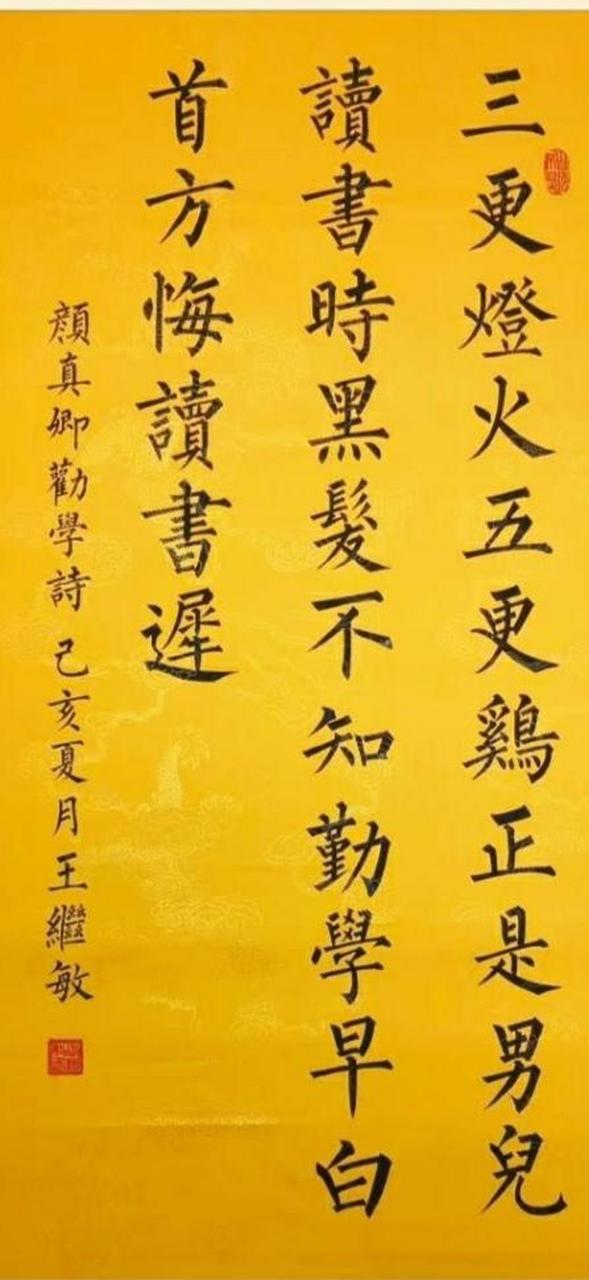 三更燈火五更鷄正是男兒
讀書時黑髮不知勤學早白
首方悔讀書遲
顔真卿勸學詩己亥夏月王繼敏